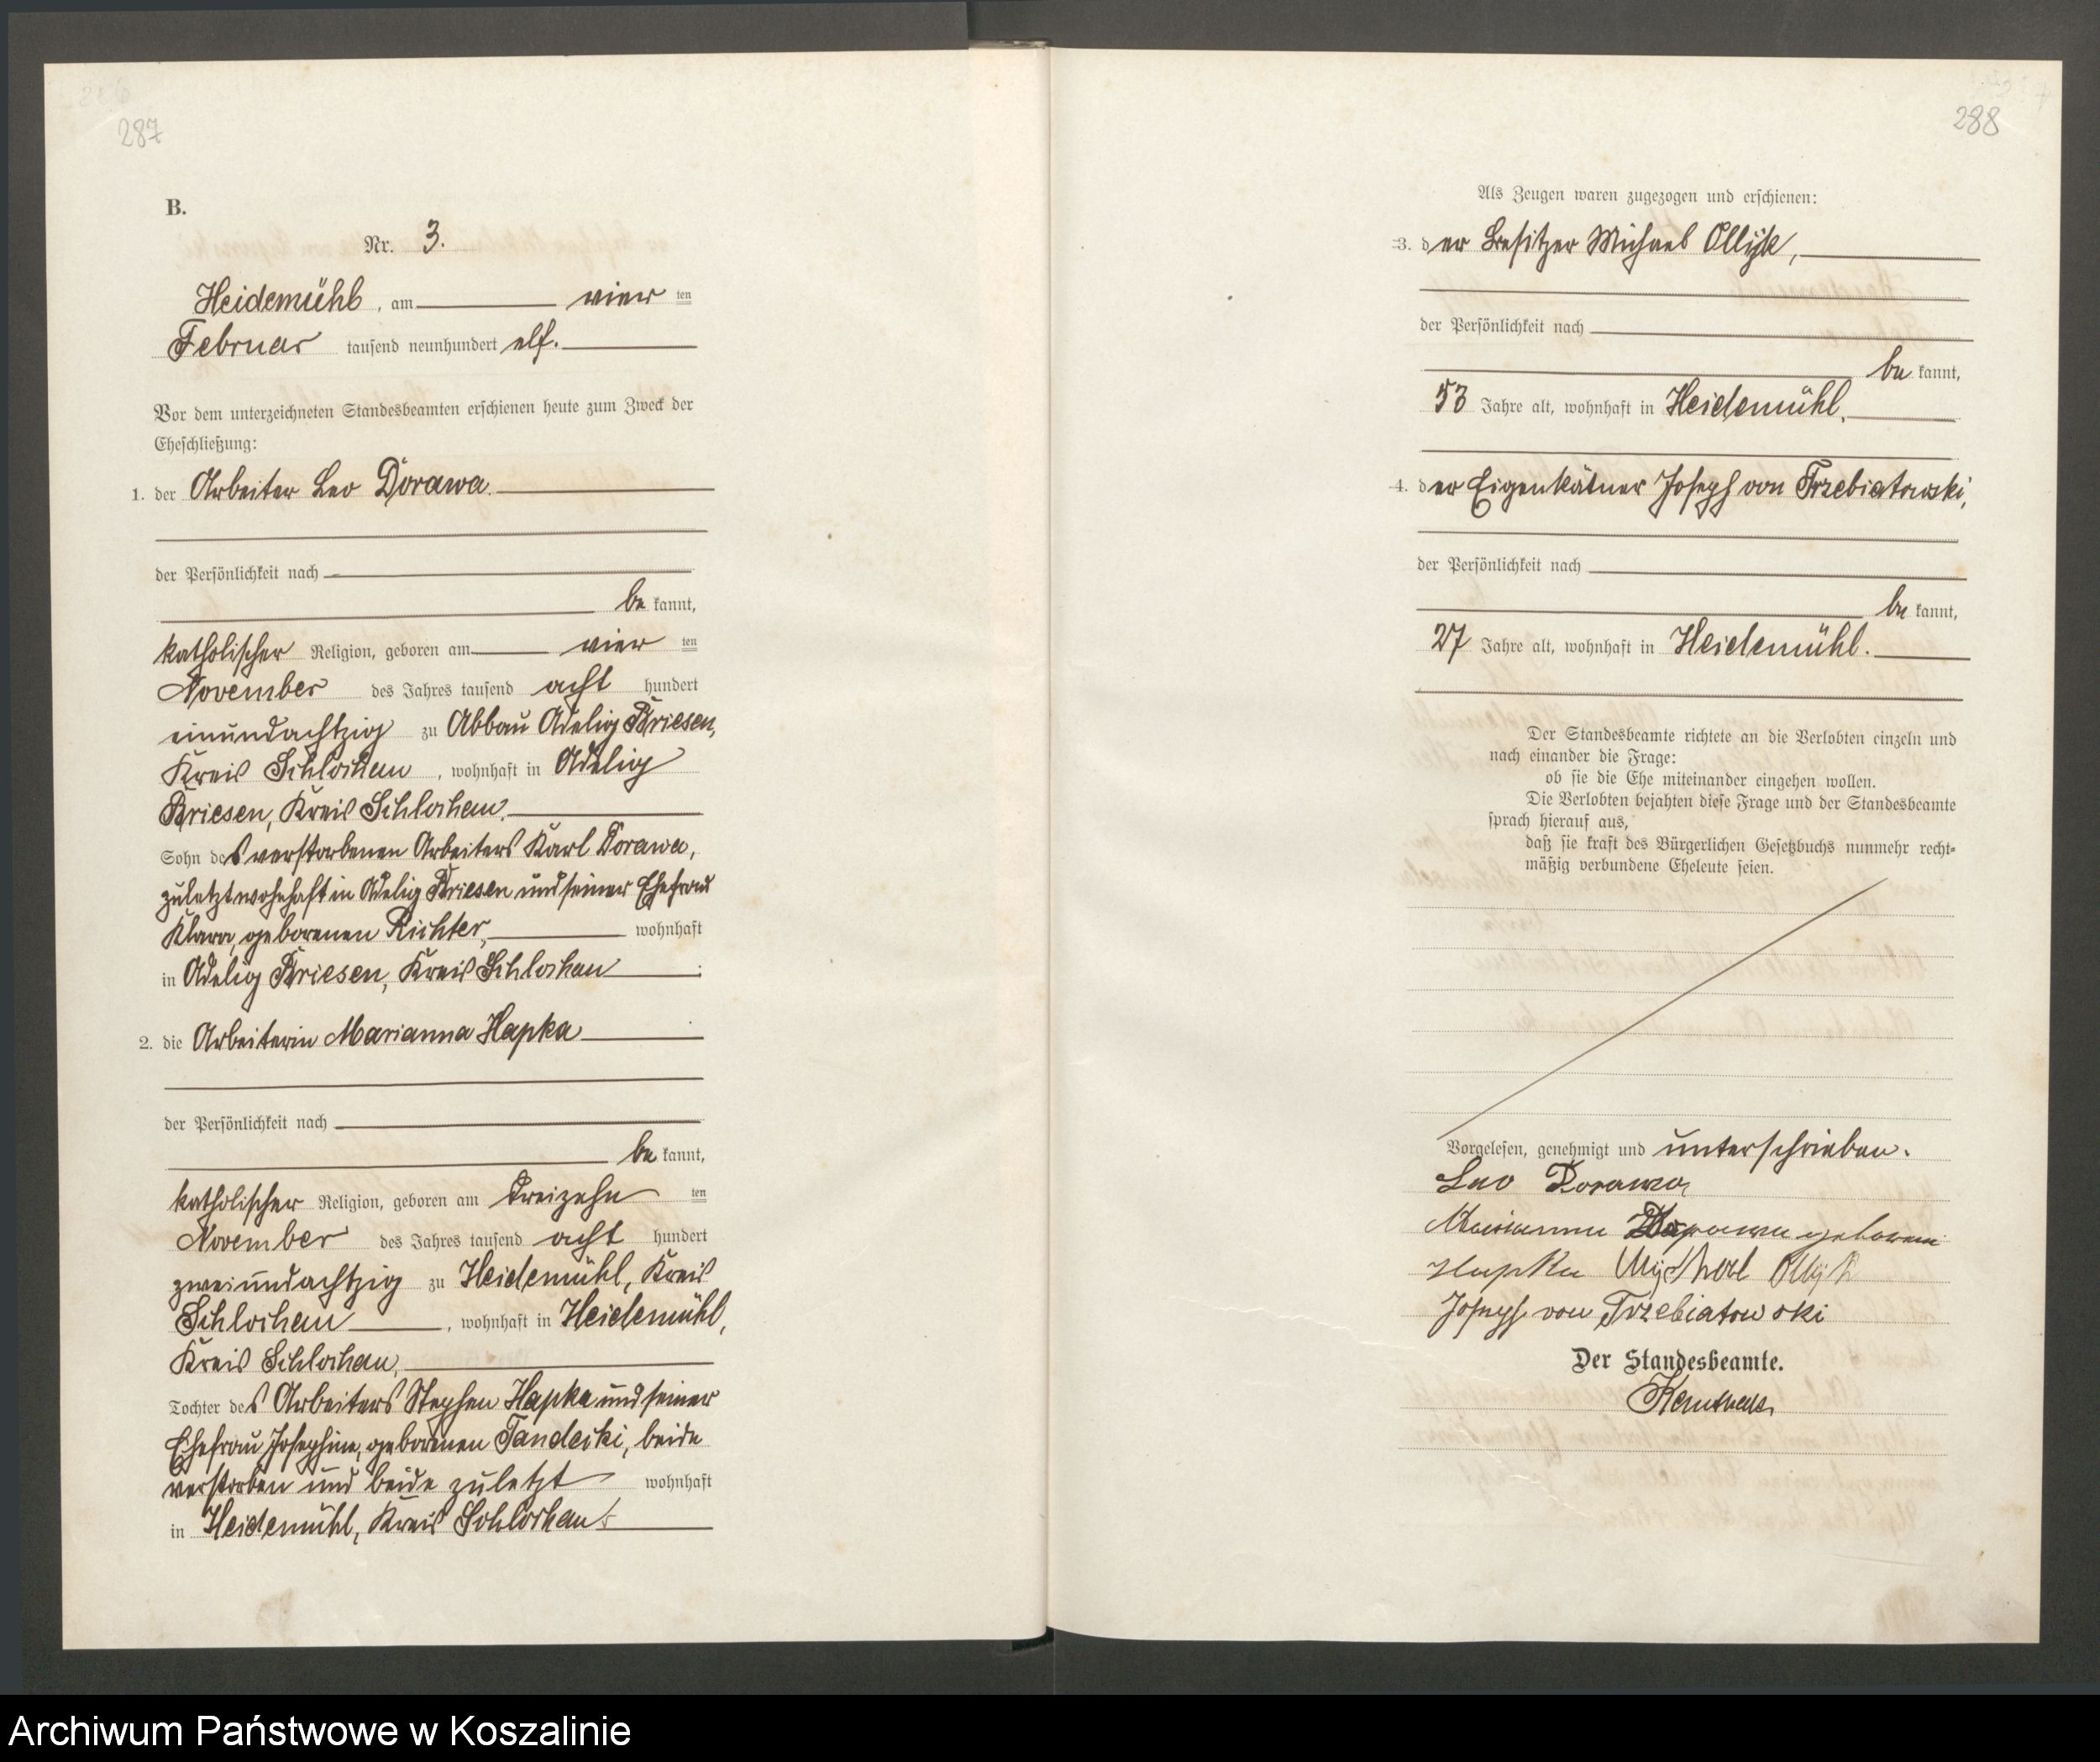 287
B.
Nr. 3.
Heidemühl, am vier ten
Februar tausend neunhundert elf.
Vor dem unterzeichneten Standesbeamten erschienen heute zum Zweck der
Eheschließung:
1. der Arbeiter Leo Dorawa
der Persönlichkeit nach
be kannt,
katholischer Religion, geboren am vier ten
November des Jahres tausend acht hundert
einundachtzig zu Abbau Adelig Briesen,
Kreis Schlochau, wohnhaft in Adelig
Briesen, Kreis Schlochau,
Sohn des verstorbenen Arbeiters Karl Dorawa,
zuletzt wohnhaft in Adelig Briesen und seiner Ehefrau
Klara, geborenen Richter, wohnhaft
in Adelig Briesen, Kreis Schlochau ;
2. die Arbeiterin Marianna Hapka
der Persönlichkeit nach
be kannt,
katholischer Religion, geboren am dreizehn ten
November des Jahres tausend acht hundert
zweiundachtzig zu Heidemühl, Kreis
Schlochau, wohnhaft in Heidemühl,
Kreis Schlochau,
Tochter des Arbeiters Stephan Hapka und seiner
Ehefrau Josephine, geborenen Tandecki, beide
verstorben und beide zuletzt wohnhaft
in Heidemühl, Kreis Schlochau.
288
Als Zeugen waren zugezogen und erschienen:
3. der Besitzer Michael Ollyk,
der Persönlichkeit nach
be kannt,
53 Jahre alt, wohnhaft in Heidemühl,
4. der Eigenkätner Joseph von Trzebiatowski,
der Persönlichkeit nach
be kannt,
27 Jahre alt, wohnhaft in Heidemühl.
Der Standesbeamte richtete an die Verlobten einzeln und
nach einander die Frage:
ob sie die Ehe miteinander eingehen wollen.
Die Verlobten bejahten diese Frage und der Standesbeamte
sprach hierauf aus,
daß sie kraft des Bürgerlichen Gesetzbuchs nunmehr recht-
mäßig verbundene Eheleute seien.
Vorgelesen, genehmigt und unterschrieben.
Leo Dorawa
Marianna Dorawa geborene
Hapka Mychael Ollyk
Joseph von Trzebiatowski
Der Standesbeamte.
Archiwum Państwowe w Koszalinie